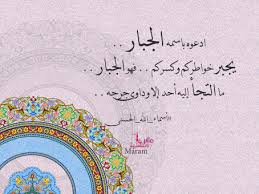 ادعوه باسمه الجبار . .
يجبر خواطركم وكسركم . . فهو الجبار . .
ما التجأ إليه أحد إلا وداوى جرحه . .
#أسماء_الله_الحسنى
Maram